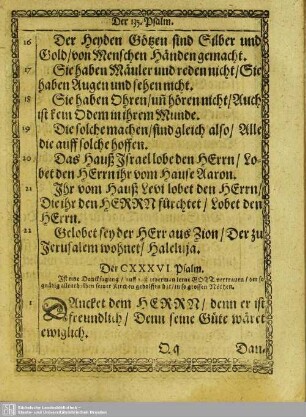 Der 135. Psalm.
16 Der Heyden Götzen sind Silber und
Gold/ von Menschen Händen gemacht.
17 Sie haben Mäuler und reden nicht/ Sie
haben Augen und sehen nicht.
18 Sie haben Ohren/ uñ hören nicht/ Auch
ist kein Odem in ihrem Munde.
19 Die solche machen/ sind gleich also/ Alle
die auff solche hoffen.
20 Das Hauß Israel lobe den HErrn/ Lo-
bet den HErrn ihr vom Hause Aaron.
21 Ihr vom Hauß Levi lobet den HErrn/
Die ihr den HERRN fürchtet/ Lobet den
HErrn.
22 Gelobet sey der HErr aus Zion/ Der zu
Jerusalem wohnet/ Haleluja.
Der CXXXVI Psalm.
Ist eine Dancksagung/
1 DAncket dem HERRN/ denn er ist
freundlich/ Denn seine Güte wäret
ewiglich.
Q q
Dan-